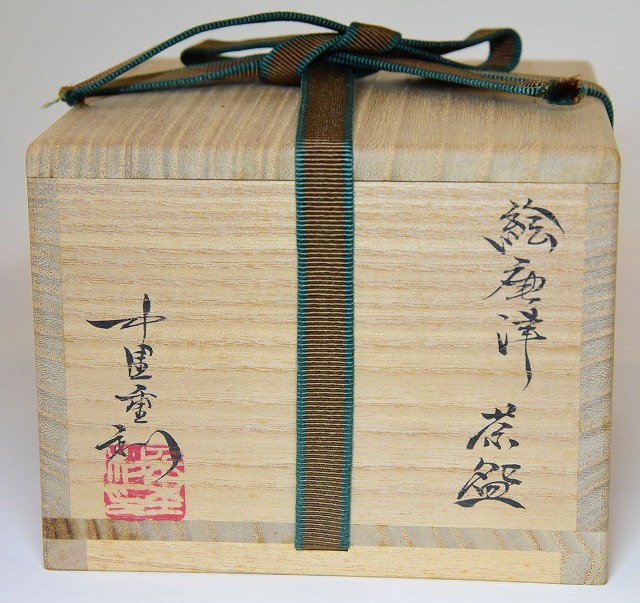 絵唐津 茶盌
中里重利